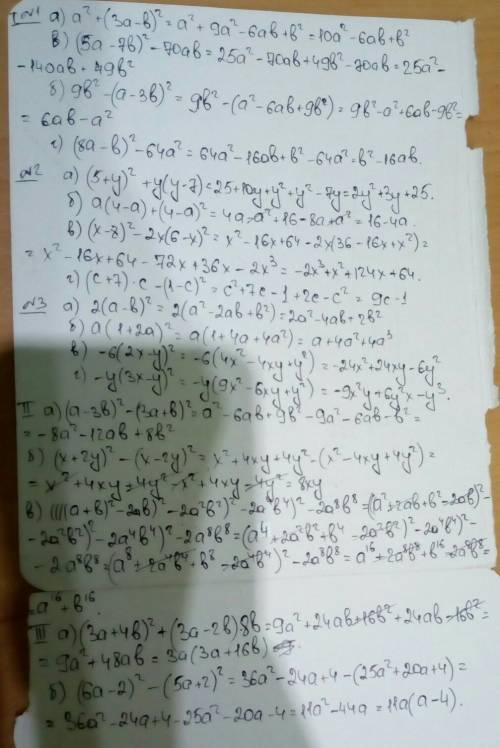 I №1 а) a² + (3a-b)² = a² + 9a² - 6ab + b² = 10a² - 6ab + b²
в) (5a - 7b)² - 70ab = 25a² - 70ab + 49b² - 70ab = 25a² -
- 140ab + 49b²
б) 9b² - (a - 3b)² = 9b² - (a² - 6ab + 9b²) = 9b² - a² + 6ab - 9b² =
= 6ab - a²
г) (8a - b)² - 64a² = 64a² - 16ab + b² - 64a² = b² - 16ab.
№2 а) (5+y)² + y(y-7) = 25 + 10y + y² + y² - 7y = 2y² + 3y + 25.
б) a(4-a) + (4-a)² = 4a - a² + 16 - 8a + a² = 16 - 4a.
в) (x-8)² - 2x(6-x)² = x² - 16x + 64 - 2x(36 - 16x + x²) =
= x² - 16x + 64 - 72x + 36x - 2x³ = -2x³ + x² + 124x + 64.
г) (c+7)·c - (1-c)² = c² + 7c - 1 + 2c - c² = 9c - 1
№3 а) 2(a-b)² = 2(a² - 2ab + b²) = 2a² - 4ab + 2b²
б) a(1+2a)² = a(1 + 4a + 4a²) = a + 4a² + 4a³
в) -6(2x-y)² = -6(4x² - 4xy + y²) = -24x² + 24xy - 6y²
г) -y(3x-y)² = -y(9x² - 6xy + y²) = -9x²y + 6y²x - y³.
II а) (a-3b)² - (3a+b)² = a² - 6ab + 9b² - 9a² - 6ab - b² =
= -8a² - 12ab + 8b²
б) (x+2y)² - (x-2y)² = x² + 4xy + 4y² - (x² - 4xy + 4y²) =
= x² + 4xy + 4y² - x² + 4xy - 4y² = 8xy
в) ((((a+b)² - 2ab)² - 2a²b²)² - 2a⁴b⁴)² - 2a⁸b⁸ = (((a² + 2ab + b² - 2ab)² -
- 2a²b²)² - 2a⁴b⁴)² - 2a⁸b⁸ = ((a⁴ + 2a²b² + b⁴ - 2a²b²)² - 2a⁴b⁴)² -
- 2a⁸b⁸ = (a⁸ + 2a⁴b⁴ + b⁸ - 2a⁴b⁴)² - 2a⁸b⁸ = a¹⁶ + 2a⁸b⁸ + b¹⁶ - 2a⁸b⁸ =
= a¹⁶ + b¹⁶.
III а) (3a+4b)² + (3a-2b)·8b = 9a² + 24ab + 16b² + 24ab - 16b² =
= 9a² + 48ab = 3a(3a + 16b)
б) (6a-2)² - (5a+2)² = 36a² - 24a + 4 - (25a² + 20a + 4) =
= 36a² - 24a + 4 - 25a² - 20a - 4 = 11a² - 44a = 11a(a-4).